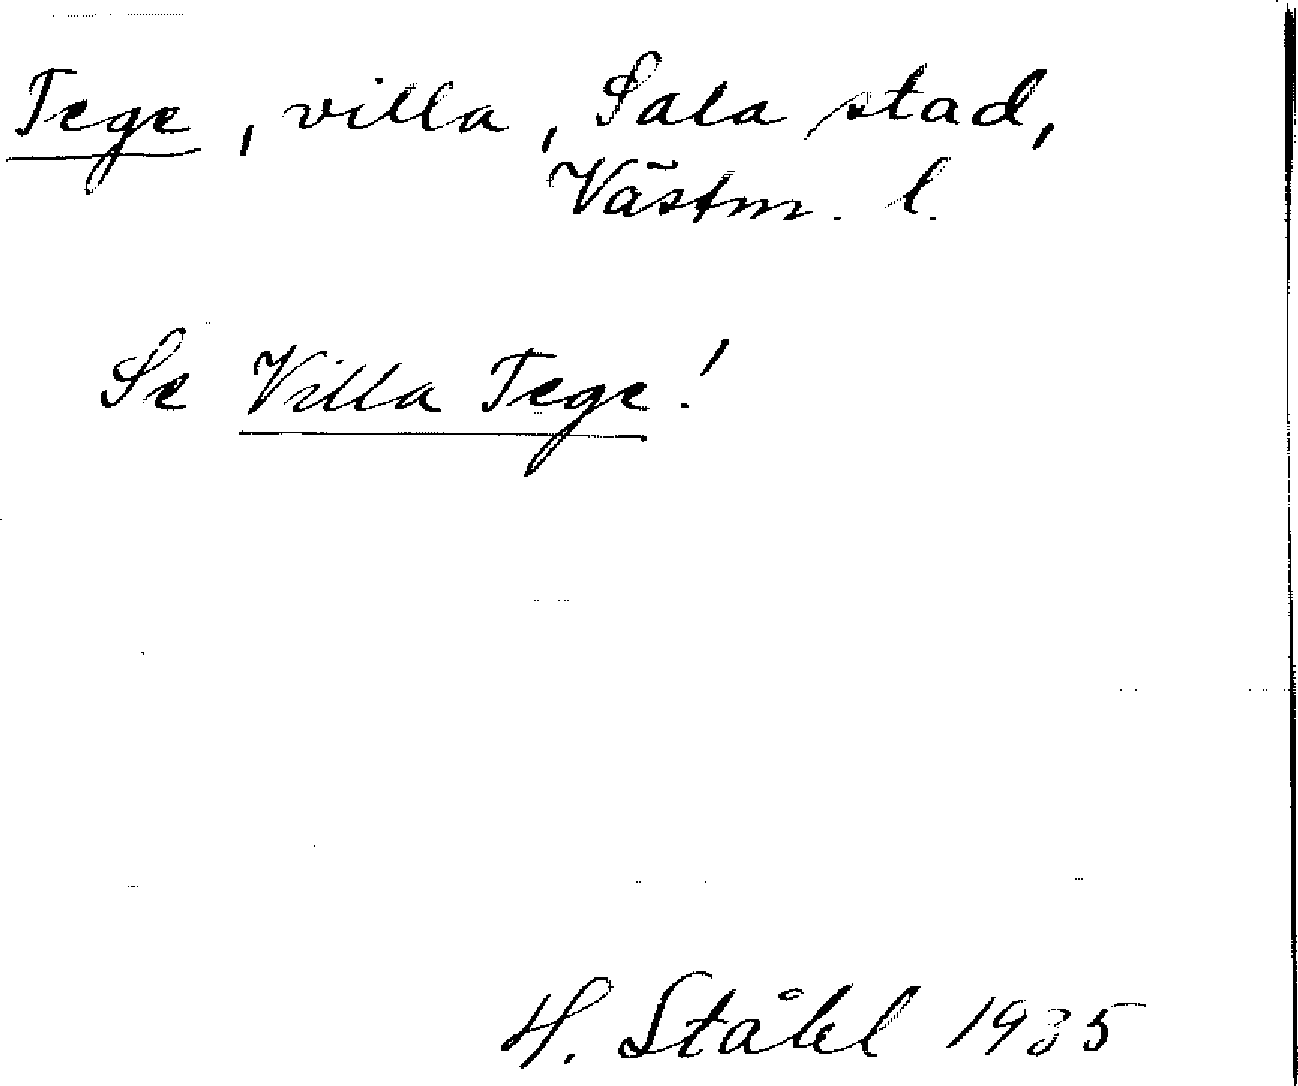 Tege, villa, Sala stad,
Västm. l.
Se Villa Tege!
H. Ståhl 1935